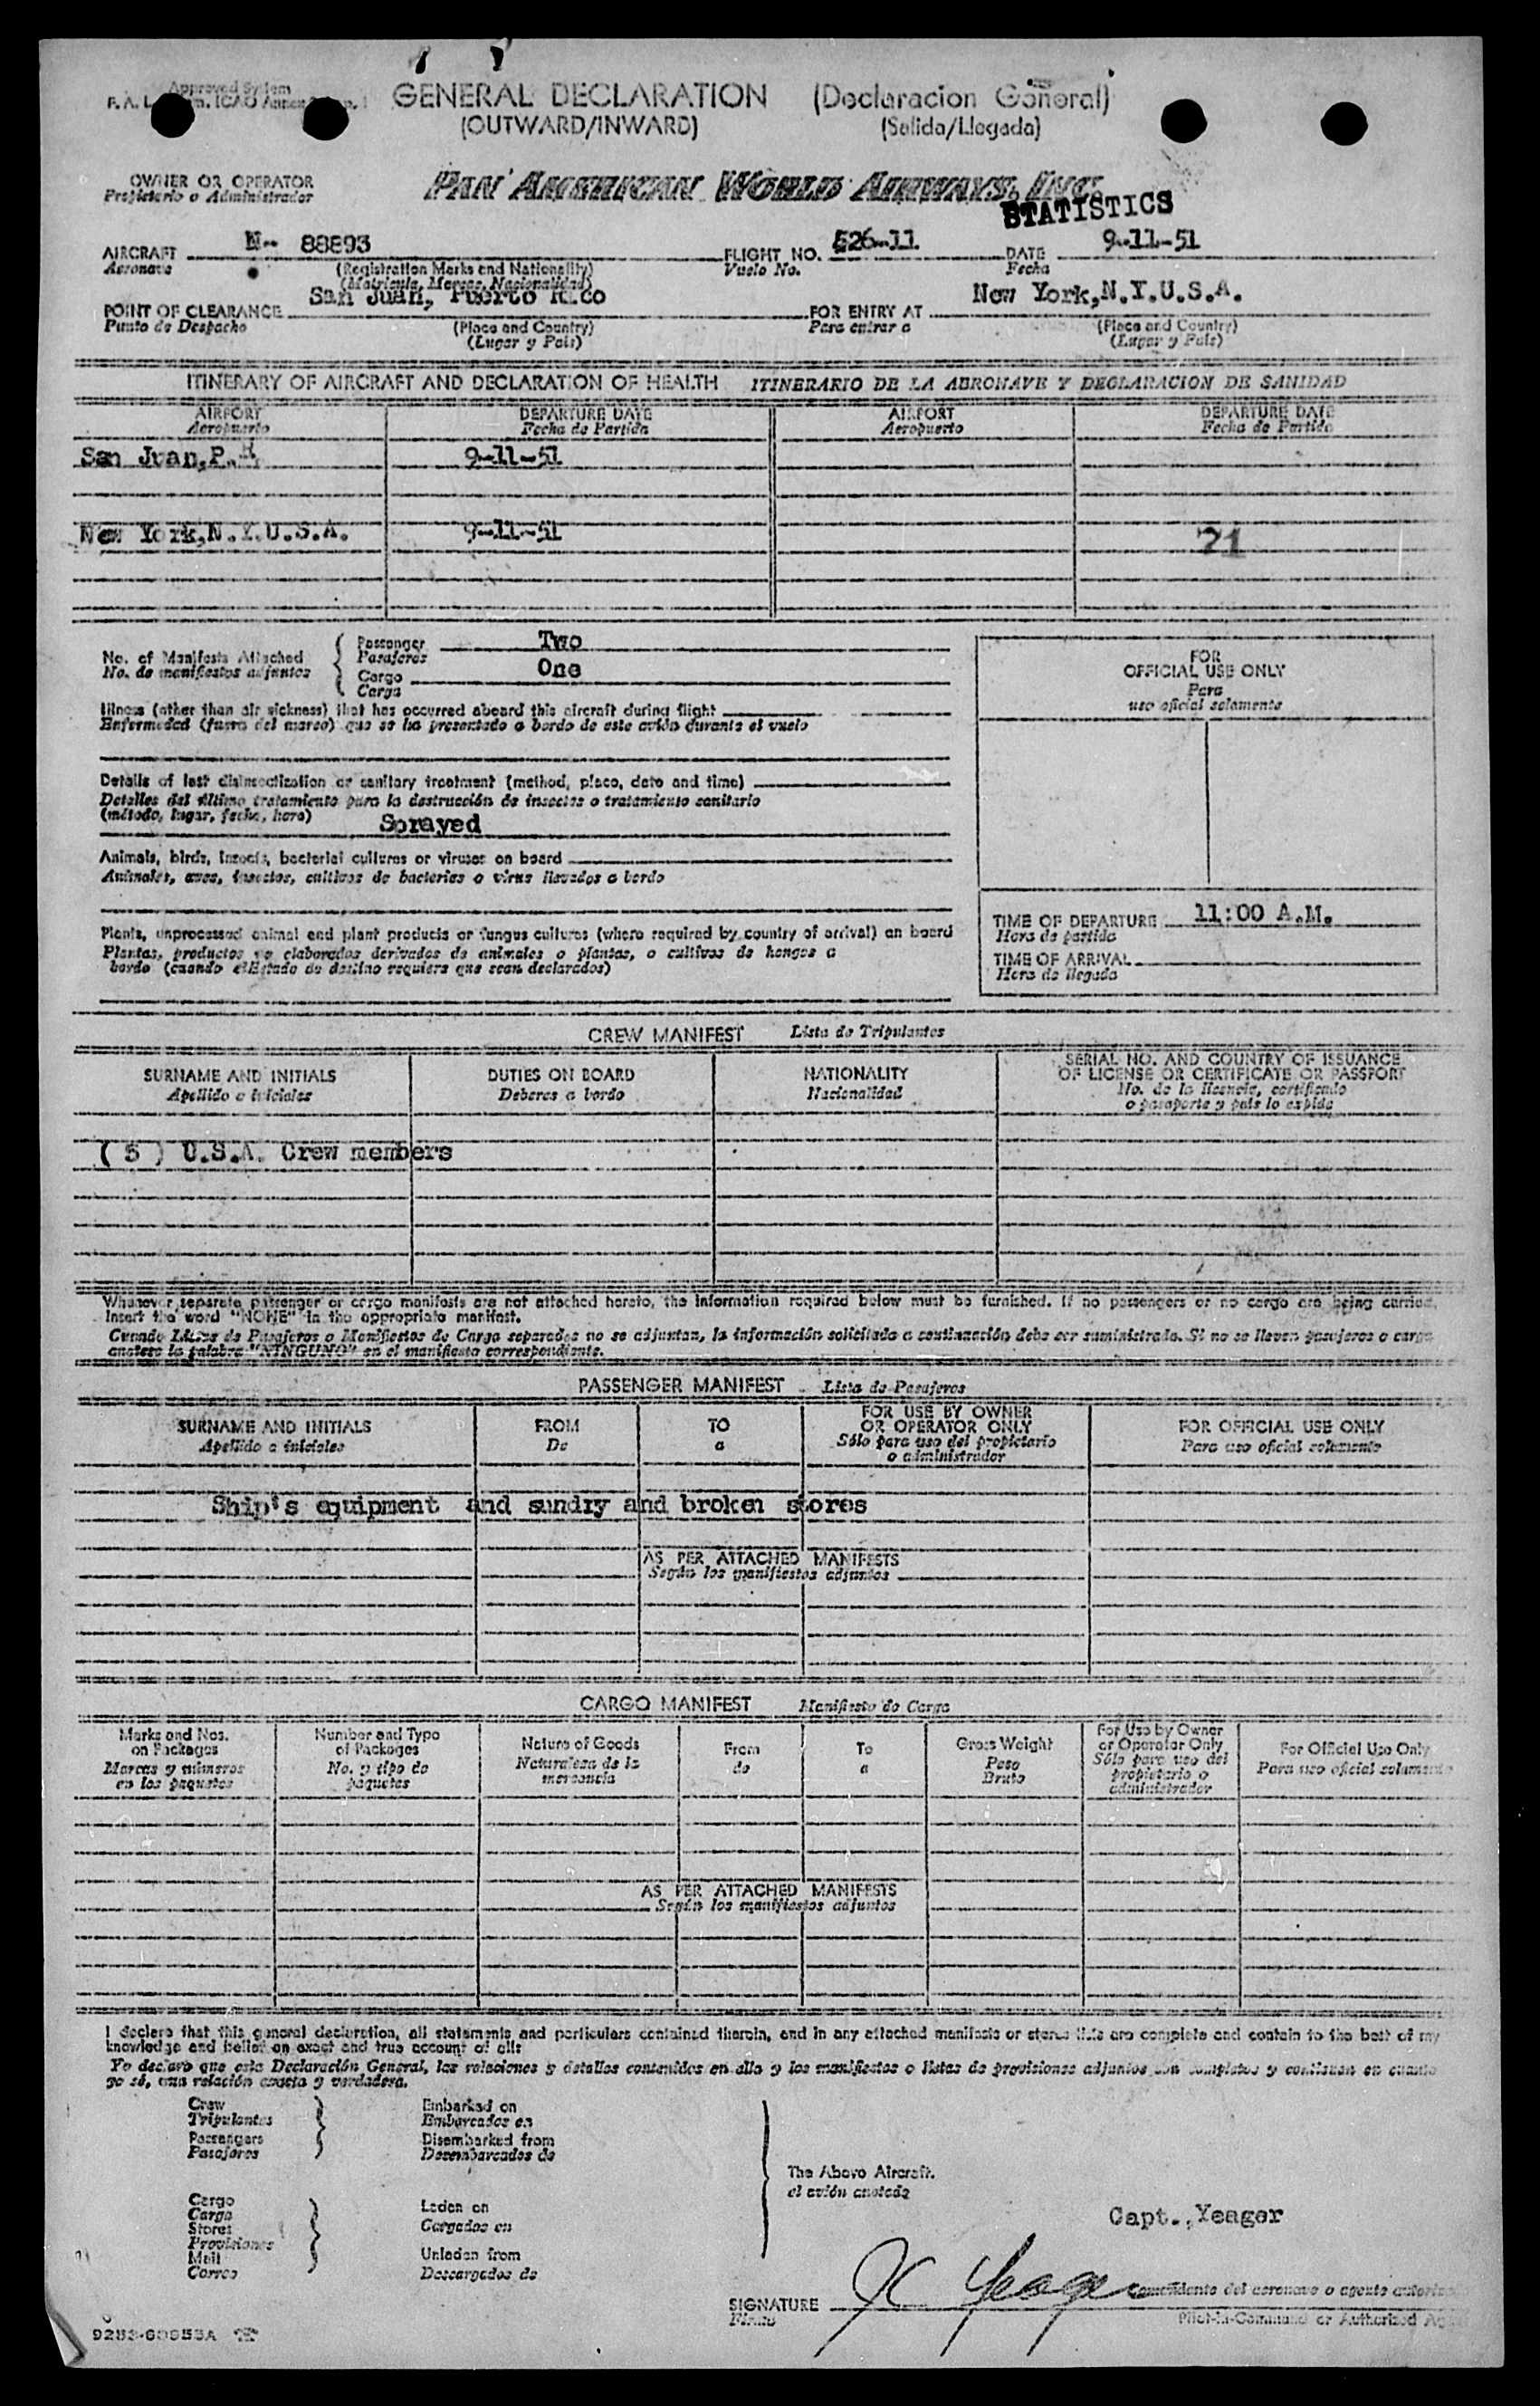 Approved System
GENERAL DECLARATION (Declaracion General)
(OUTWARD/INWARD) (Salida/Llegada)
OWNER OR OPERATOR
Propietario o Administrador
PAN AMERICAN WORLD AIRWAYS, INC.
STATISTICS
AIRCRAFT N- 88893 FLIGHT NO. 526-11 DATE 9-11-51
Aeronave (Registration Marks and Nationality) Vuelo No. Fecha
(Matricula, Marcas, Nacionalidad)
POINT OF CLEARANCE San Juan, Puerto Rico FOR ENTRY AT New York,N.Y.U.S.A.
Punto de Despacho (Place and Country) Para entrar a (Place and Country)
(Lugar y Pais) (Lugar y Pais)
ITINERARY OF AIRCRAFT AND DECLARATION OF HEALTH ITINERARIO DE LA AERONAVE Y DECLARACION DE SANIDAD
AIRPORT DEPARTURE DATE AIRPORT DEPARTURE DATE
Aeropuerto Fecha de Partida Aeropuerto Fecha de Partida
San Juan,P.R. 9-11-51
New York,N.Y.U.S.A. 9-11-51 21
No. of Manifests Attached
No. de manifiestos adjuntos
Passenger Two
Pasajeros
Cargo One
Carga
FOR
OFFICIAL USE ONLY
Para
uso oficial solamente
Illness (other than air sickness) that has occurred aboard this aircraft during flight
Enfermedad (fuera del mareo) que se ha presentado a bordo de este avión durante el vuelo
Details of last disinsectization or sanitary treatment (method, place, date and time)
Detalles del último tratamiento para la destrucción de insectos o tratamiento sanitario
(método, lugar, fecha, hora) Sprayed
Animals, birds, insects, bacterial cultures or viruses on board
Animales, aves, insectos, cultivos de bacterias o virus llevados a bordo
Plants, unprocessed animal and plant products or fungus cultures (where required by country of arrival) on board
Plantas, productos no elaborados derivados de animales o plantas, o cultivos de hongos a
bordo (cuando el Estado de destino requiera que sean declarados)
TIME OF DEPARTURE 11:00 A.M.
Hora de partida
TIME OF ARRIVAL
Hora de llegada
CREW MANIFEST Lista de Tripulantes
SURNAME AND INITIALS DUTIES ON BOARD NATIONALITY SERIAL NO. AND COUNTRY OF ISSUANCE
OF LICENSE OR CERTIFICATE OR PASSPORT
Apellido e iniciales Deberes a bordo Nacionalidad No. de la licencia, certificado
o pasaporte y país lo expide
( 5 ) U.S.A. Crew members
Whenever separate passenger or cargo manifests are not attached hereto, the information required below must be furnished. If no passengers or no cargo are being carried,
insert the word "NONE" in the appropriate manifest.
Cuando Listas de Pasajeros o Manifiestos de Carga separados no se adjuntan, la información solicitada a continuación debe ser suministrada. Si no se llevan pasajeros o carga
anótese la palabra "NINGUNO" en el manifiesto correspondiente.
PASSENGER MANIFEST Lista de Pasajeros
SURNAME AND INITIALS FROM TO FOR USE BY OWNER
OR OPERATOR ONLY FOR OFFICIAL USE ONLY
Apellido e iniciales De a Sólo para uso del propietario
o administrador Para uso oficial solamente
Ship's equipment and sundry and broken stores
AS PER ATTACHED MANIFESTS
Según los manifiestos adjuntos
CARGO MANIFEST Manifiesto de Carga
Marks and Nos.
on Packages
Marcas y números
en los paquetes
Number and Type
of Packages
No. y tipo de
paquetes
Nature of Goods
Naturaleza de la
mercancía
From
de
To
a
Gross Weight
Peso
Bruto
For Use by Owner
or Operator Only
Sólo para uso del
propietario o
administrador
For Official Use Only
Para uso oficial solamente
AS PER ATTACHED MANIFESTS
Según los manifiestos adjuntos
I declare that this general declaration, all statements and particulars contained therein, and in any attached manifests or stores lists are complete and contain to the best of my
knowledge and belief an exact and true account of all:
Yo declaro que esta Declaración General, las relaciones y detalles contenidos en ella y los manifiestos o listas de provisiones adjuntos son completos y contienen en cuanto
yo sé, una relación exacta y verdadera.
Crew
Tripulantes
Passengers
Pasajeros
Embarked on
Embarcados en
Disembarked from
Desembarcados de
The Above Aircraft.
el avión anotado
Cargo
Carga
Stores
Provisiones
Mail
Correo
Laden on
Cargados en
Unladen from
Descargados de
Capt., Yeager
SIGNATURE K Yeager
Firma
Comandante del aeronave o agente
Pilot-in-Command or Authorized